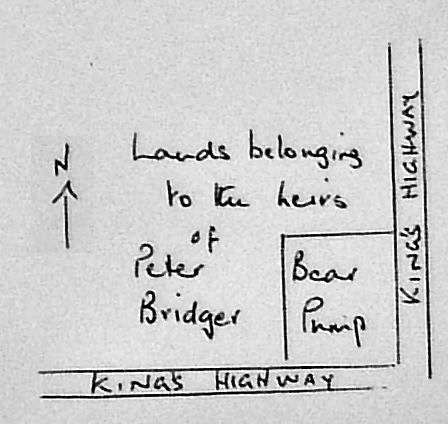 N
Lands belonging
to the heirs
of
Peter
Bridger
Bear
Pump
KING'S HIGHWAY
KING'S HIGHWAY